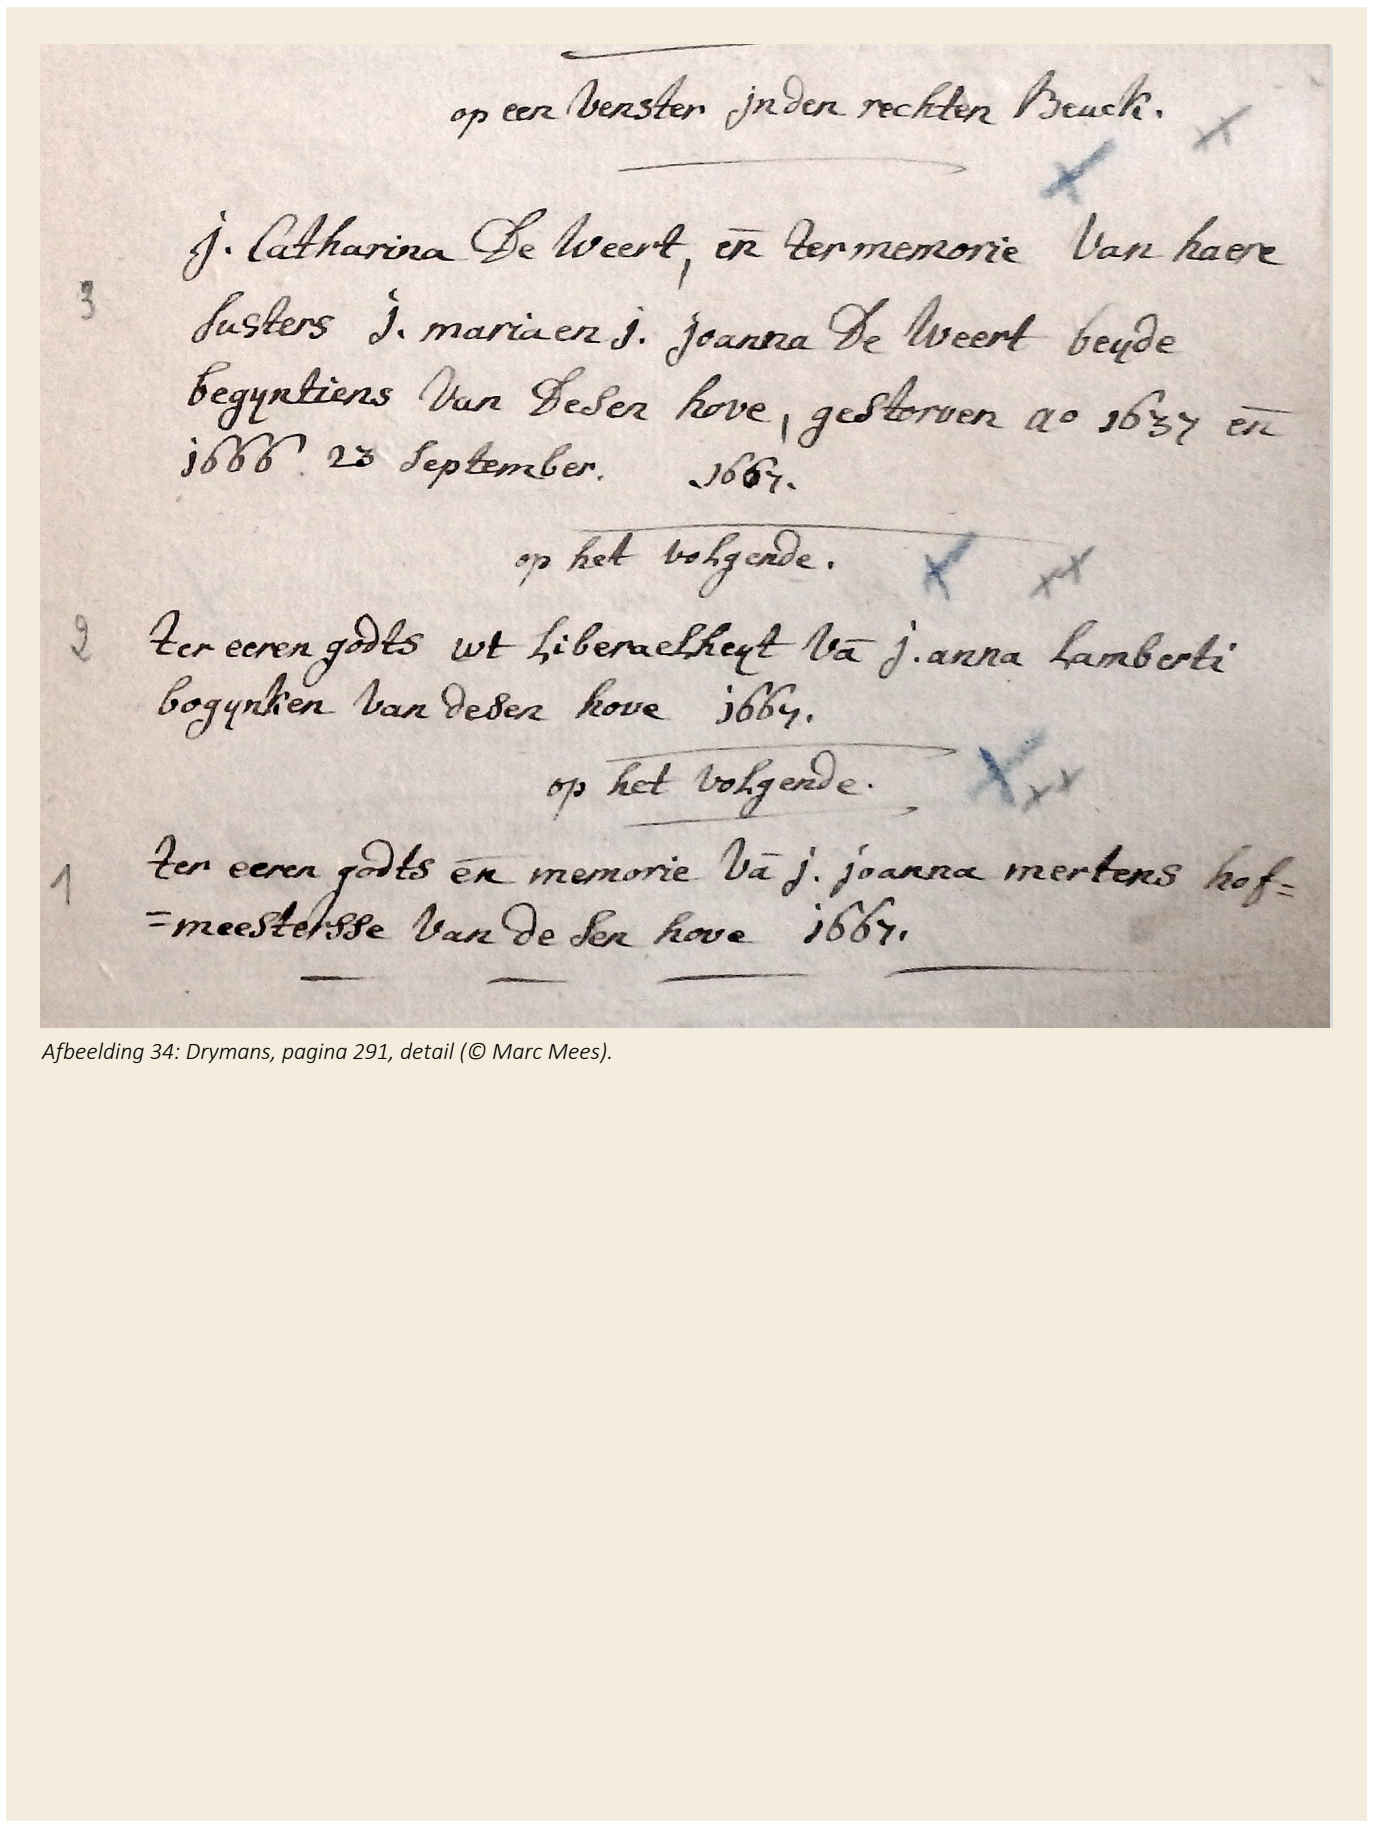 op een Venster jnden rechten Beuck.
j. Catharina De Weert, en̄ ter memorie Van haere
3
susters j. maria en j. joanna De Weert beyde
begyntiens Van Desen hove, gestorven ao 1637 en̄
1666 23 September. .1667.
op het volgende.
2
ter eeren godts wt Liberaelheyt Vā j. anna Lamberti
bogynken Van desen hove 1667.
op het Volgende.
1
ter eeren godts en̄ memorie Vā j. joanna mertens hof=
=meestersse Van de sen hove 1667.
Afbeelding 34: Drymans, pagina 291, detail (© Marc Mees).